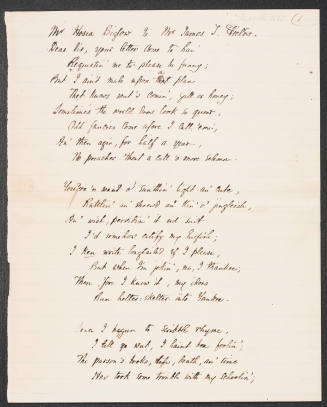 Mr Hosea Biglow to Mr James T. Fields.
Dear Sir, your letter come to han'
Requestin' me to please be funny;
But I ain't made upon a plan
Thet knows wut's comin', gall or honey:
Sometimes the world doos look so queer,
Odd fancies come afore I call 'em;
An' then agin, for half a year,
No preacher 'thout a call 's more solemn.
You're 'n want o' sunthin' light an' cute,
Rattlin' an' shrewd an' kin' o' jingleish,
An' wish, pervidin' it 'ould suit,
I'd somehow citify my English;
I ken write long-tailed ef I please,
But when I'm jokin', no, I thankee;
Then, 'fore I know it, my idees
Run helter-skelter into Yankee.
Sence I begun to scribble rhyme,
I tell ye wut, I haint ben foolin';
The parson's books, life, death, an' time
Hev took some trouble with my schoolin';